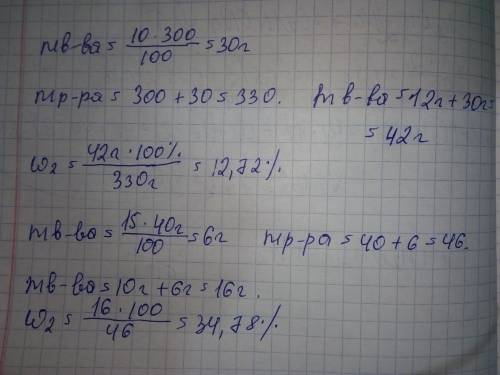 mв-ва = 10·300 / 100 = 30г
mр-ра = 300 + 30 = 330. mв-ва = 12г + 30г =
= 42г
ω₂ = 42г·100% / 330г = 12,72%.
mв-ва = 15·40г / 100 = 6г mр-ра = 40 + 6 = 46.
mв-ва = 10г + 6г = 16г.
ω₂ = 16·100 / 46 = 34,78%.